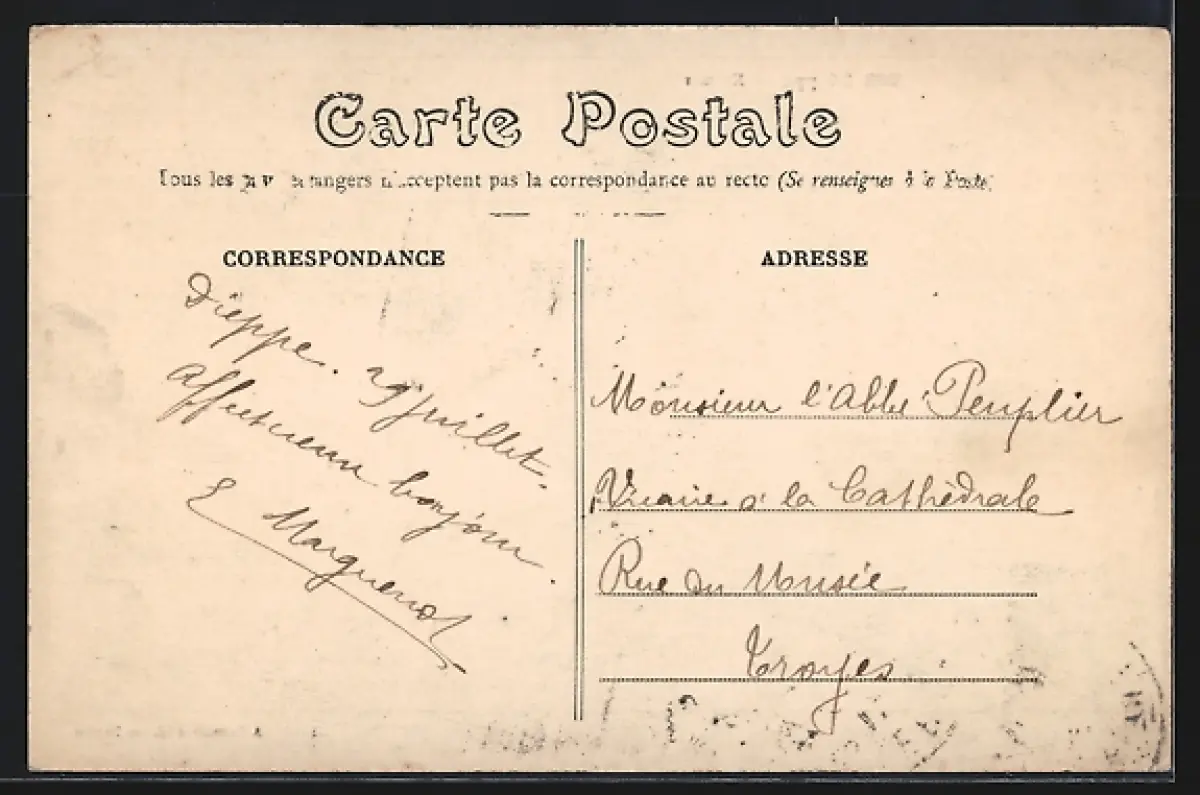 Carte Postale
Tous les étrangers n'acceptent pas la correspondance au recto (Se renseigner à la Poste)
CORRESPONDANCE
ADRESSE
Dieppe. 29 juillet.
Affectueux bonjour.
E Marguenot
Monsieur l'Abbé Peuplier
Vicaire à la Cathédrale
Rue du Musée
Troyes